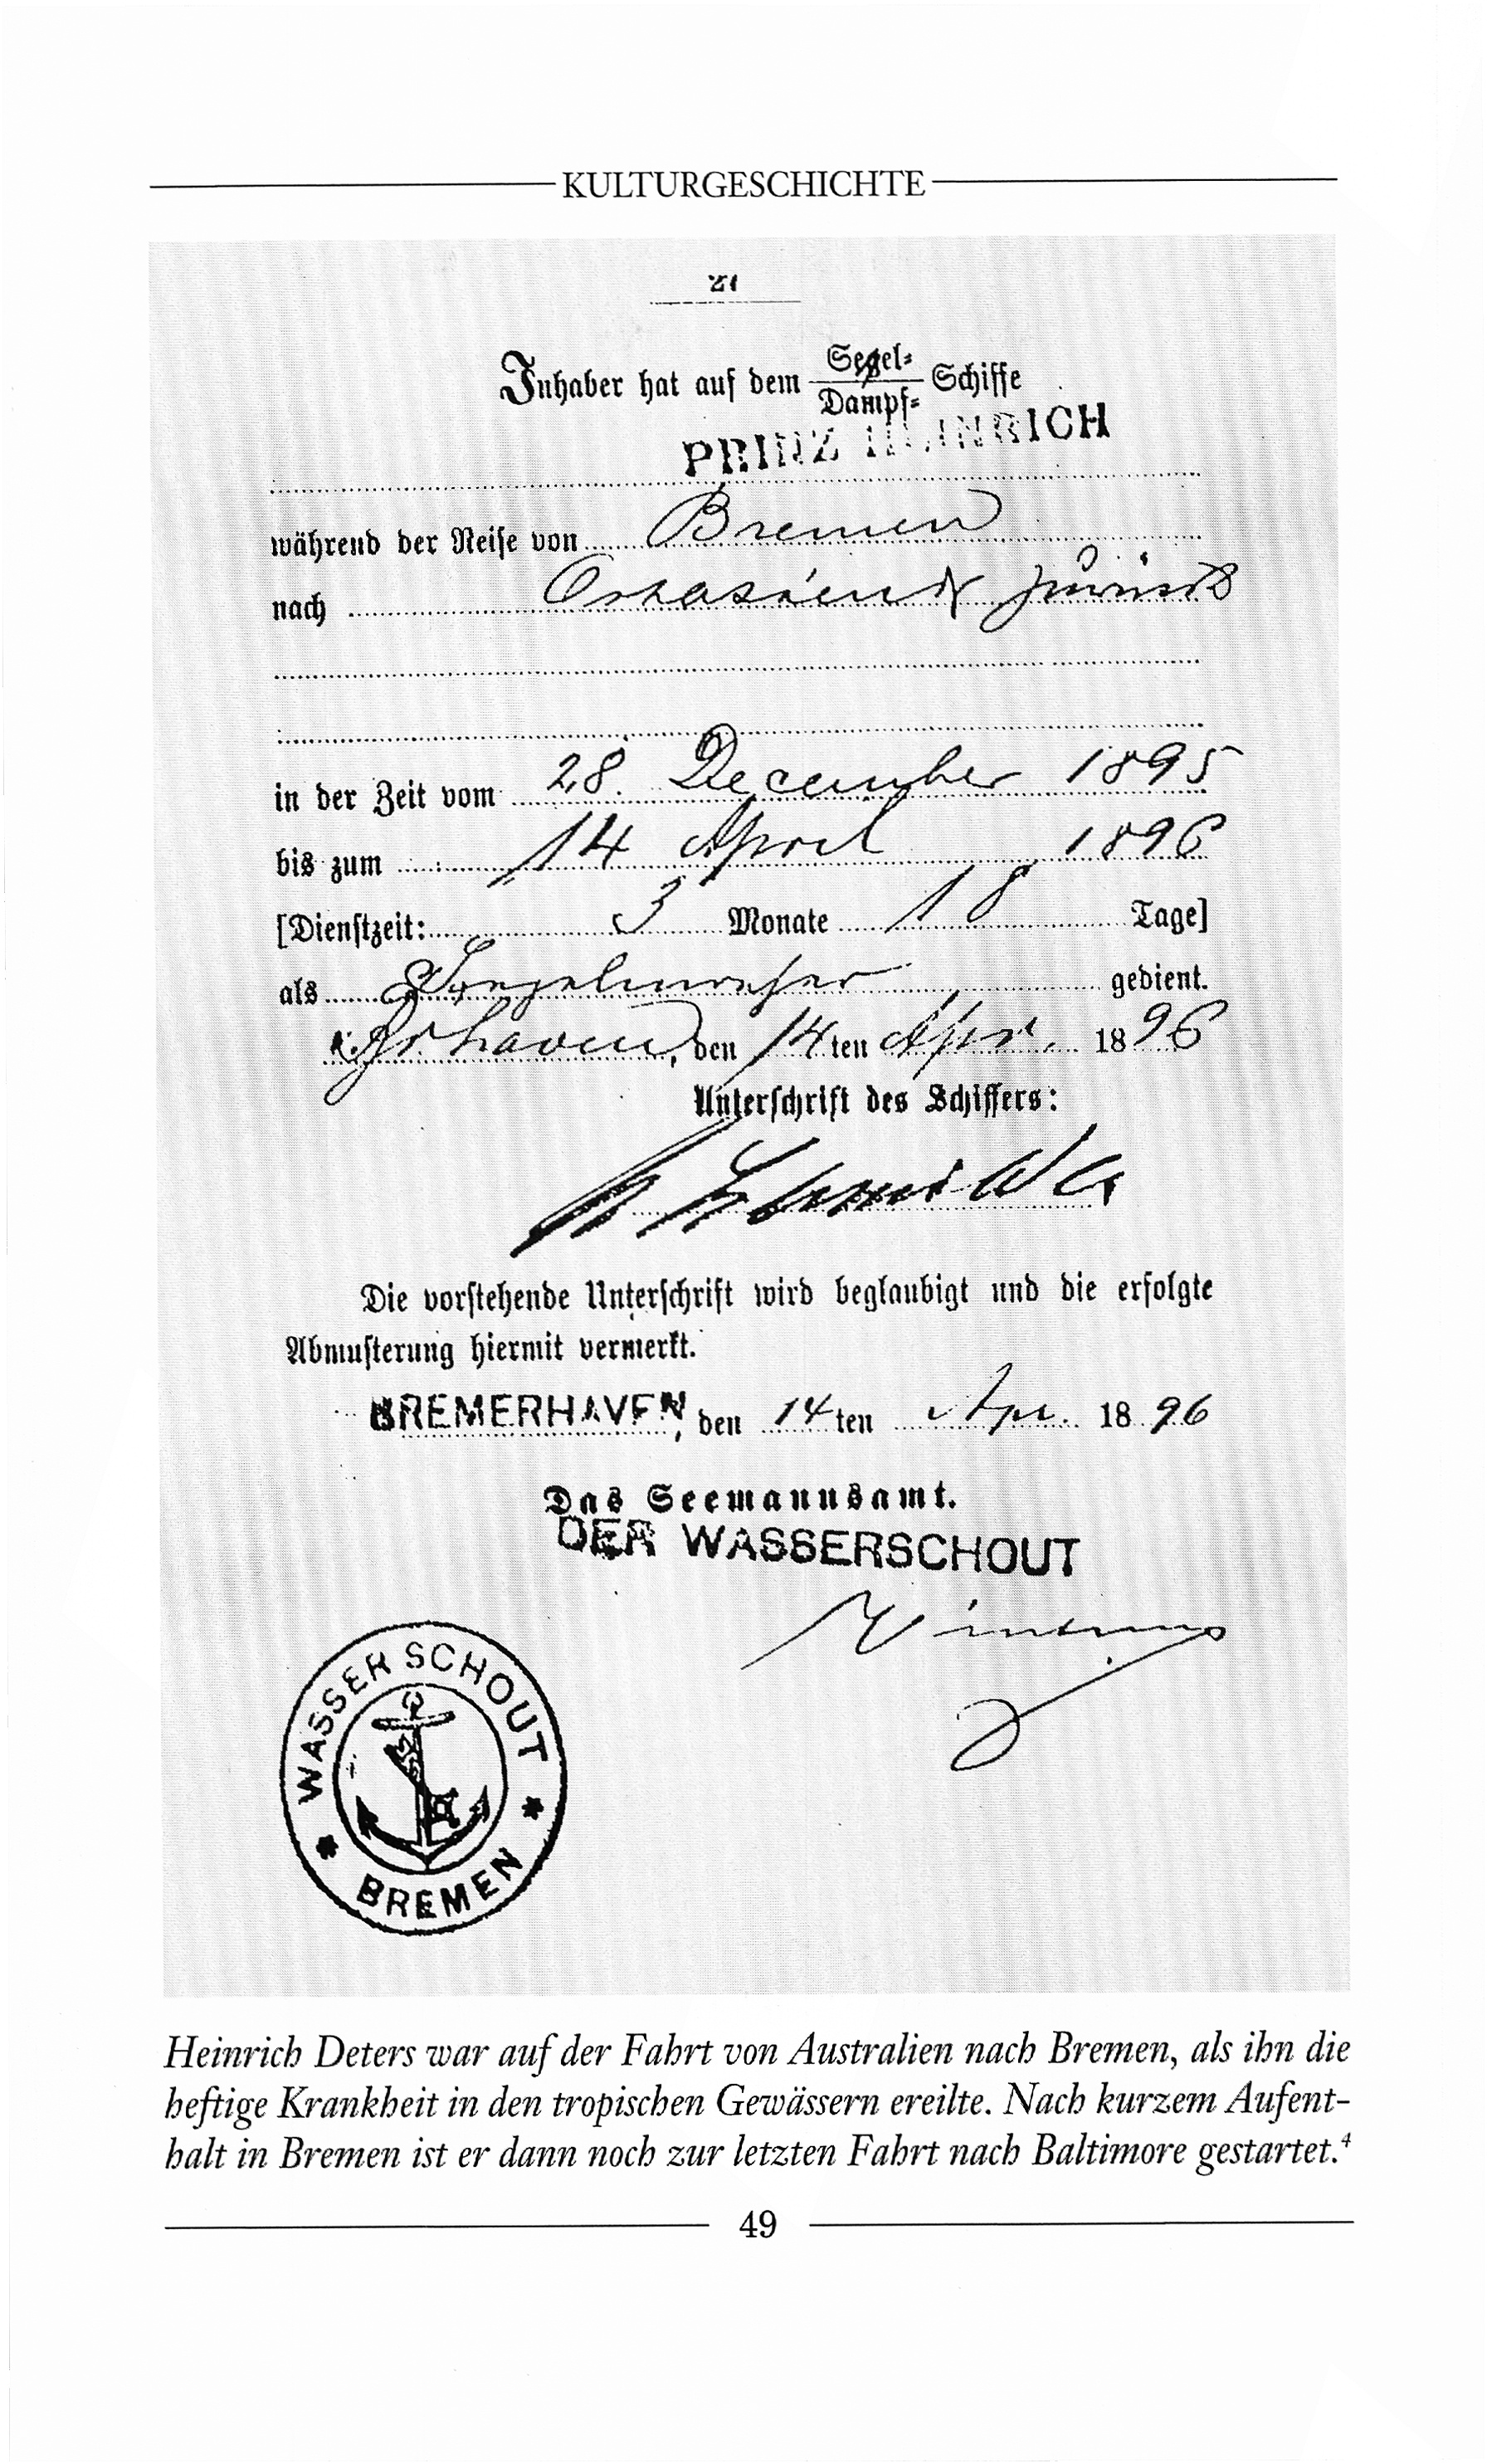 KULTURGESCHICHTE
21
Inhaber hat auf dem Segel-/Dampf- Schiffe
PRINZ HEINRICH
während der Reise von Bremen
nach Ostasien & zurück
in der Zeit vom 28. December 1895
bis zum 14 April 1896
[Dienstzeit: 3 Monate 18 Tage]
als gedient.
Brhaven, den 14ten Apr. 1896
Unterschrift des Schiffers:
Die vorstehende Unterschrift wird beglaubigt und die erfolgte
Abmusterung hiermit vermerkt.
BREMERHAVEN, den 14ten Apr. 1896
Das Seemannsamt.
DER WASSERSCHOUT
WASSERSCHOUT
BREMEN
Heinrich Deters war auf der Fahrt von Australien nach Bremen, als ihn die
heftige Krankheit in den tropischen Gewässern ereilte. Nach kurzem Aufent-
halt in Bremen ist er dann noch zur letzten Fahrt nach Baltimore gestartet.4
49